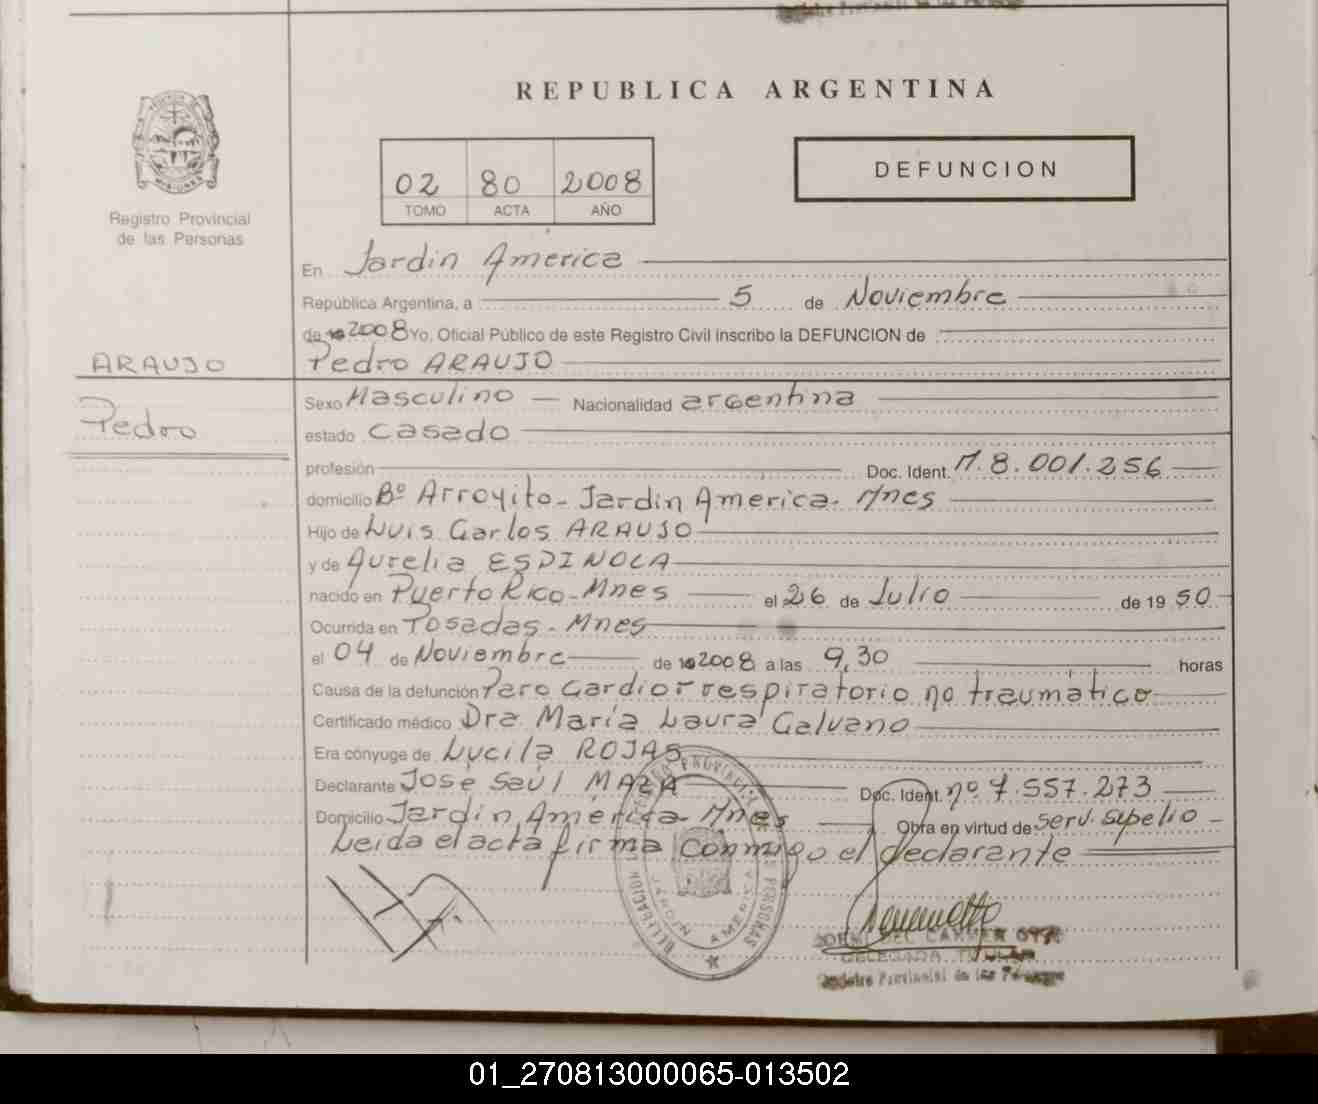 REPUBLICA ARGENTINA
02 80 2008
TOMO ACTA AÑO
DEFUNCION
Registro Provincial
de las Personas
En Jardin America
República Argentina, a 5 de Noviembre
de 2008 Yo, Oficial Público de este Registro Civil inscribo la DEFUNCION de
ARAUJO
Pedro ARAUJO
Pedro
Sexo Masculino Nacionalidad argentina
estado casado
profesión Doc. Ident. M. 8.001.256
domicilio Bº Arroyito - Jardin America - Mnes
Hijo de Luis Carlos ARAUJO
y de Aurelia ESPINOLA
nacido en Puerto Rico - Mnes el 26 de Julio de 19 50
Ocurrida en Posadas - Mnes
el 04 de Noviembre de 2008 a las 9,30 horas
Causa de la defunción Paro Cardiorrespiratorio no traumático
Certificado médico Dra. María Laura Galvano
Era cónyuge de Lucila ROJAS
Declarante Jose Saúl MAZA Doc. Ident. nº 7.557.273
Domicilio Jardin América - Mnes Obra en virtud de serv. sepelio
Leida el acta firma conmigo el declarante
DELEGACION JARDIN AMERICA
DEL CARMEN
DELEGADA TITULAR
Registro Provincial de las Personas
01_270813000065-013502